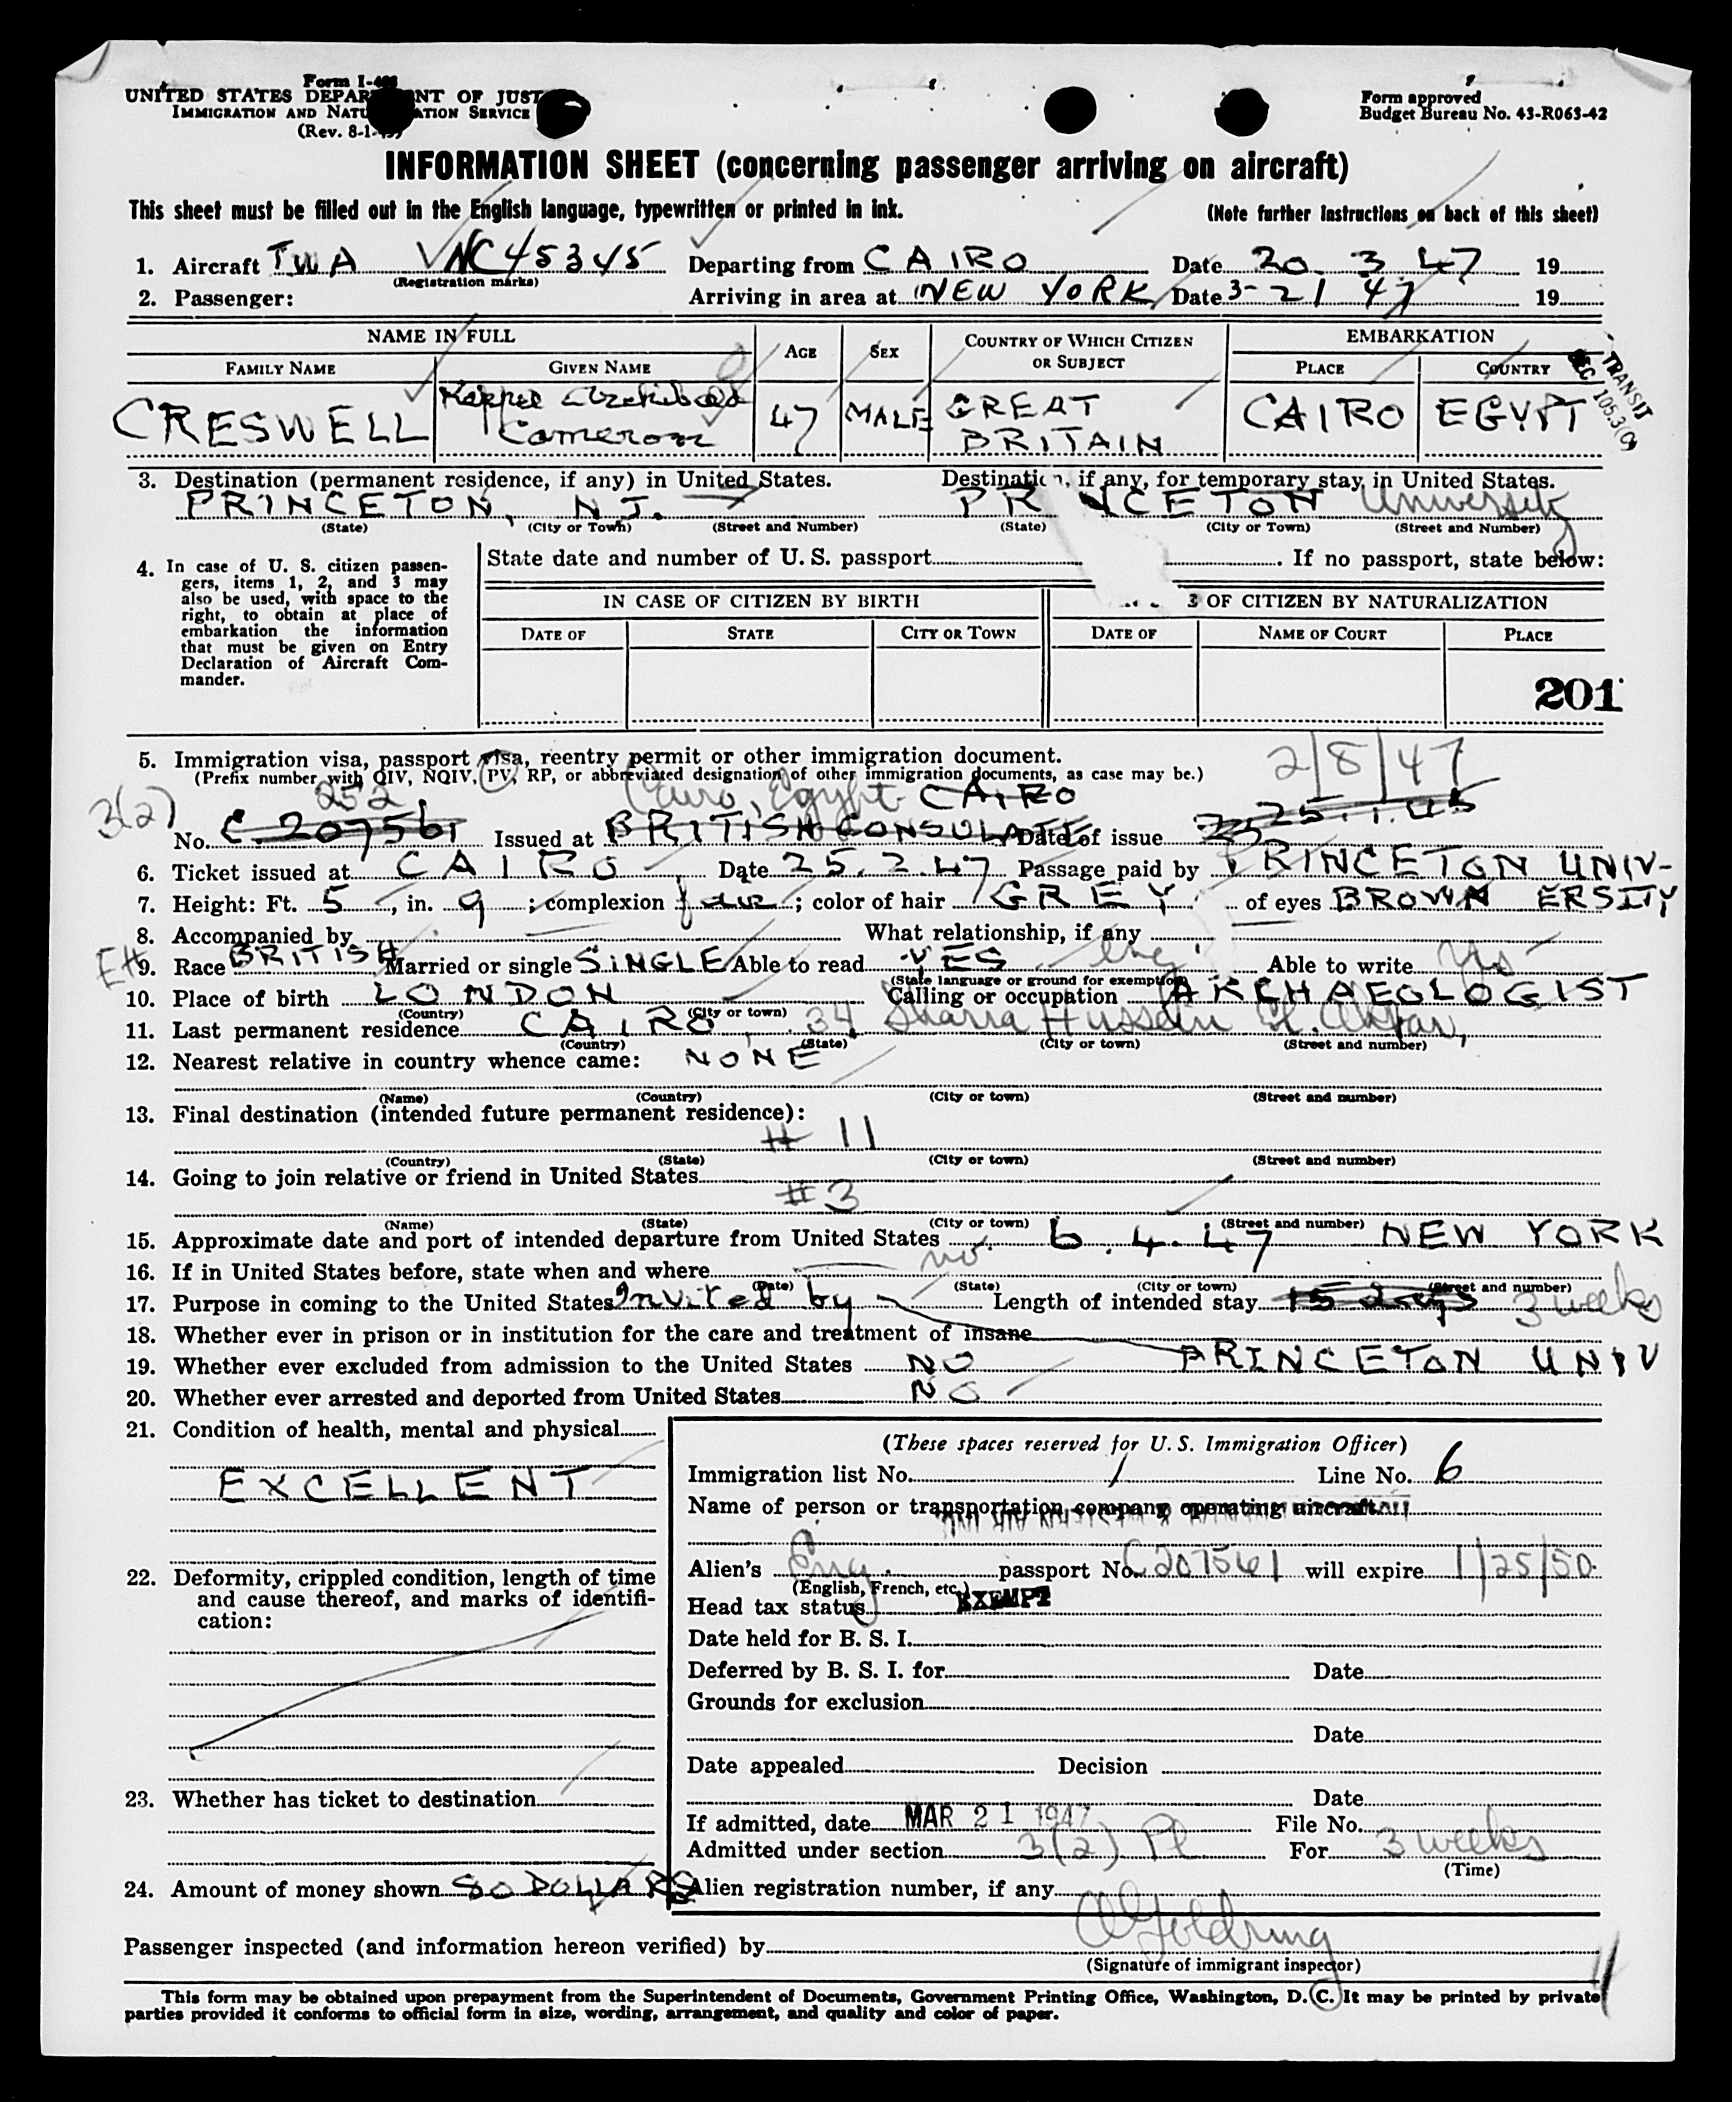 Form I-466
UNITED STATES DEPARTMENT OF JUSTICE
IMMIGRATION AND NATURALIZATION SERVICE
(Rev. 8-1-45)
Form approved
Budget Bureau No. 43-R063-42
INFORMATION SHEET (concerning passenger arriving on aircraft)
This sheet must be filled out in the English language, typewritten or printed in ink. (Note further instructions on back of this sheet)
1. Aircraft TWA NC45345 Departing from CAIRO Date 20 3 47 19
(Registration marks)
2. Passenger: Arriving in area at NEW YORK Date 3-21 47 19
NAME IN FULL AGE SEX COUNTRY OF WHICH CITIZEN OR SUBJECT EMBARKATION
FAMILY NAME GIVEN NAME PLACE COUNTRY
TRANSIT
SEC 105.3(c)
CRESWELL Keppel Archibald Cameron 47 MALE GREAT BRITAIN CAIRO EGYPT
3. Destination (permanent residence, if any) in United States. Destination, if any, for temporary stay in United States.
PRINCETON, N.J. PRINCETON University
(State) (City or Town) (Street and Number) (State) (City or Town) (Street and Number)
4. In case of U. S. citizen passengers, items 1, 2, and 3 may
also be used, with space to the
right, to obtain at place of
embarkation the information
that must be given on Entry
Declaration of Aircraft Commander.
State date and number of U. S. passport If no passport, state below:
IN CASE OF CITIZEN BY BIRTH OF CITIZEN BY NATURALIZATION
DATE OF STATE CITY OR TOWN DATE OF NAME OF COURT PLACE
201
5. Immigration visa, passport visa, reentry permit or other immigration document.
(Prefix number with QIV, NQIV, PV, RP, or abbreviated designation of other immigration documents, as case may be.)
2/8/47
3(2) 252 Cairo, Egypt CAIRO
No. C. 207561 Issued at BRITISH CONSULATE Date of issue 25.1.45
6. Ticket issued at CAIRO Date 25.2.47 Passage paid by PRINCETON UNIV-
7. Height: Ft. 5, in. 9; complexion fair; color of hair GREY of eyes BROWN ERSITY
8. Accompanied by What relationship, if any
9. Race BRITISH Married or single SINGLE Able to read YES Eng Able to write Yes
(State language or ground for exemption)
10. Place of birth LONDON Calling or occupation ARCHAEOLOGIST
(Country) (City or town)
11. Last permanent residence CAIRO 34 Sharia Hussein
(Country) (State) (City or town) (Street and number)
12. Nearest relative in country whence came: NONE
(Name) (Country) (City or town) (Street and number)
13. Final destination (intended future permanent residence):
# 11
(Country) (State) (City or town) (Street and number)
14. Going to join relative or friend in United States
# 3
(Name) (State) (City or town) (Street and number)
15. Approximate date and port of intended departure from United States 6.4.47 NEW YORK
16. If in United States before, state when and where no
(Date) (State) (City or town) (Street and number)
17. Purpose in coming to the United States Invited by Length of intended stay 15 days 3 weeks
18. Whether ever in prison or in institution for the care and treatment of insane
PRINCETON UNIV
19. Whether ever excluded from admission to the United States NO
20. Whether ever arrested and deported from United States NO
21. Condition of health, mental and physical
EXCELLENT
22. Deformity, crippled condition, length of time
and cause thereof, and marks of identification:
23. Whether has ticket to destination
24. Amount of money shown 80 DOLLARS
(These spaces reserved for U. S. Immigration Officer)
Immigration list No. 1 Line No. 6
Name of person or transportation company operating aircraft
Alien's Eng. passport No. C207561 will expire 1/25/50
(English, French, etc.)
Head tax status EXEMPT
Date held for B. S. I.
Deferred by B. S. I. for Date
Grounds for exclusion
Date
Date appealed Decision
Date
If admitted, date MAR 21 1947 File No.
Admitted under section 3(2) Pl For 3 weeks
(Time)
Alien registration number, if any
Passenger inspected (and information hereon verified) by
(Signature of immigrant inspector)
This form may be obtained upon prepayment from the Superintendent of Documents, Government Printing Office, Washington, D. C. It may be printed by private
parties provided it conforms to official form in size, wording, arrangement, and quality and color of paper.